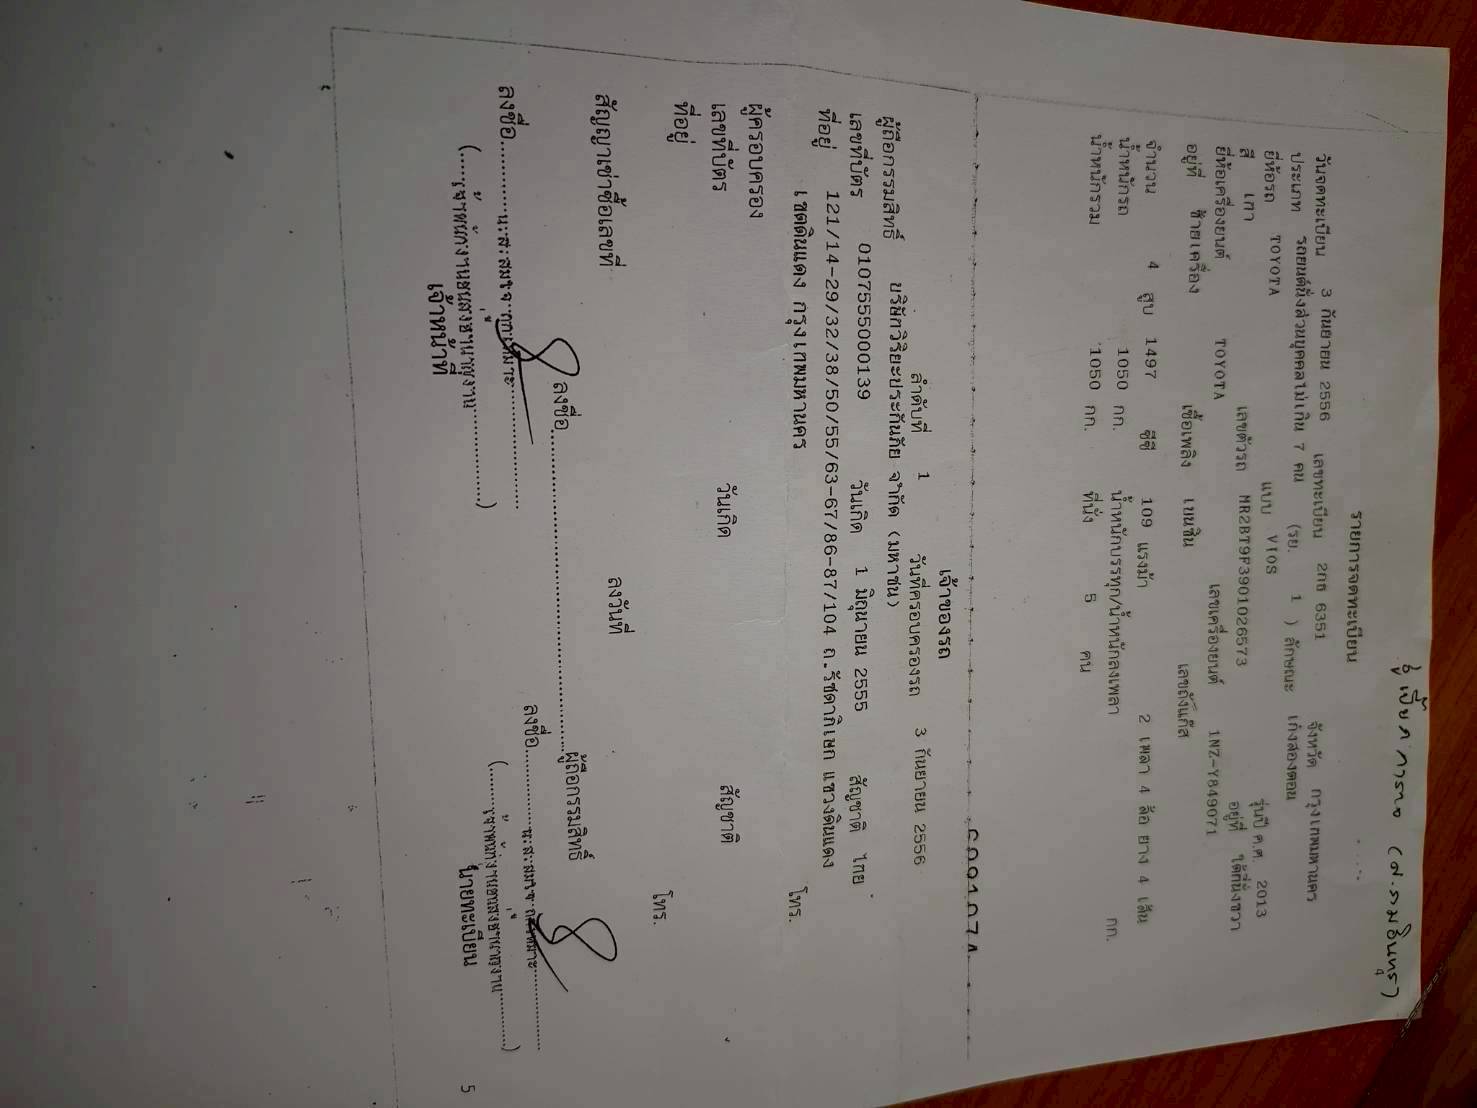 อู่ เปี๊ยก การาจ (ส.รามอินทรา)
รายการจดทะเบียน
วันจดทะเบียน 3 กันยายน 2556 เลขทะเบียน 2กธ 6351 จังหวัด กรุงเทพมหานคร
ประเภท รถยนต์นั่งส่วนบุคคลไม่เกิน 7 คน (รย. 1 ) ลักษณะ เก๋งสองตอน
ยี่ห้อรถ TOYOTA แบบ VIOS รุ่นปี ค.ศ. 2013
สี เทา เลขตัวรถ MR2BT9F3901026573 อยู่ที่ ใต้ที่นั่งขวา
ยี่ห้อเครื่องยนต์ TOYOTA เลขเครื่องยนต์ 1NZ-Y849071
อยู่ที่ ซ้ายเครื่อง เชื้อเพลิง เบนซิน เลขถังแก๊ส
จำนวน 4 สูบ 1497 ซีซี 109 แรงม้า 2 เพลา 4 ล้อ ยาง 4 เส้น
น้ำหนักรถ 1050 กก. น้ำหนักบรรทุก/น้ำหนักลงเพลา กก.
น้ำหนักรวม 1050 กก. ที่นั่ง 5 คน
เจ้าของรถ
ลำดับที่ 1 วันที่ครอบครองรถ 3 กันยายน 2556
ผู้ถือกรรมสิทธิ์ บริษัทวิริยะประกันภัย จำกัด (มหาชน)
เลขที่บัตร 0107555000139 วันเกิด 1 มิถุนายน 2555 สัญชาติ ไทย
ที่อยู่ 121/14-29/32/38/50/55/63-67/86-87/104 ถ.รัชดาภิเษก แขวงดินแดง
เขตดินแดง กรุงเทพมหานคร โทร.
ผู้ครอบครอง
เลขที่บัตร วันเกิด สัญชาติ
ที่อยู่ โทร.
สัญญาเช่าซื้อเลขที่ ลงวันที่
ลงชื่อ ผู้ถือกรรมสิทธิ์
ลงชื่อ น.ส.สมใจ ลงชื่อ น.ส.สมใจ
(เจ้าพนักงานขนส่งชำนาญงาน) (เจ้าพนักงานขนส่งชำนาญงาน)
เจ้าหน้าที่ นายทะเบียน
5